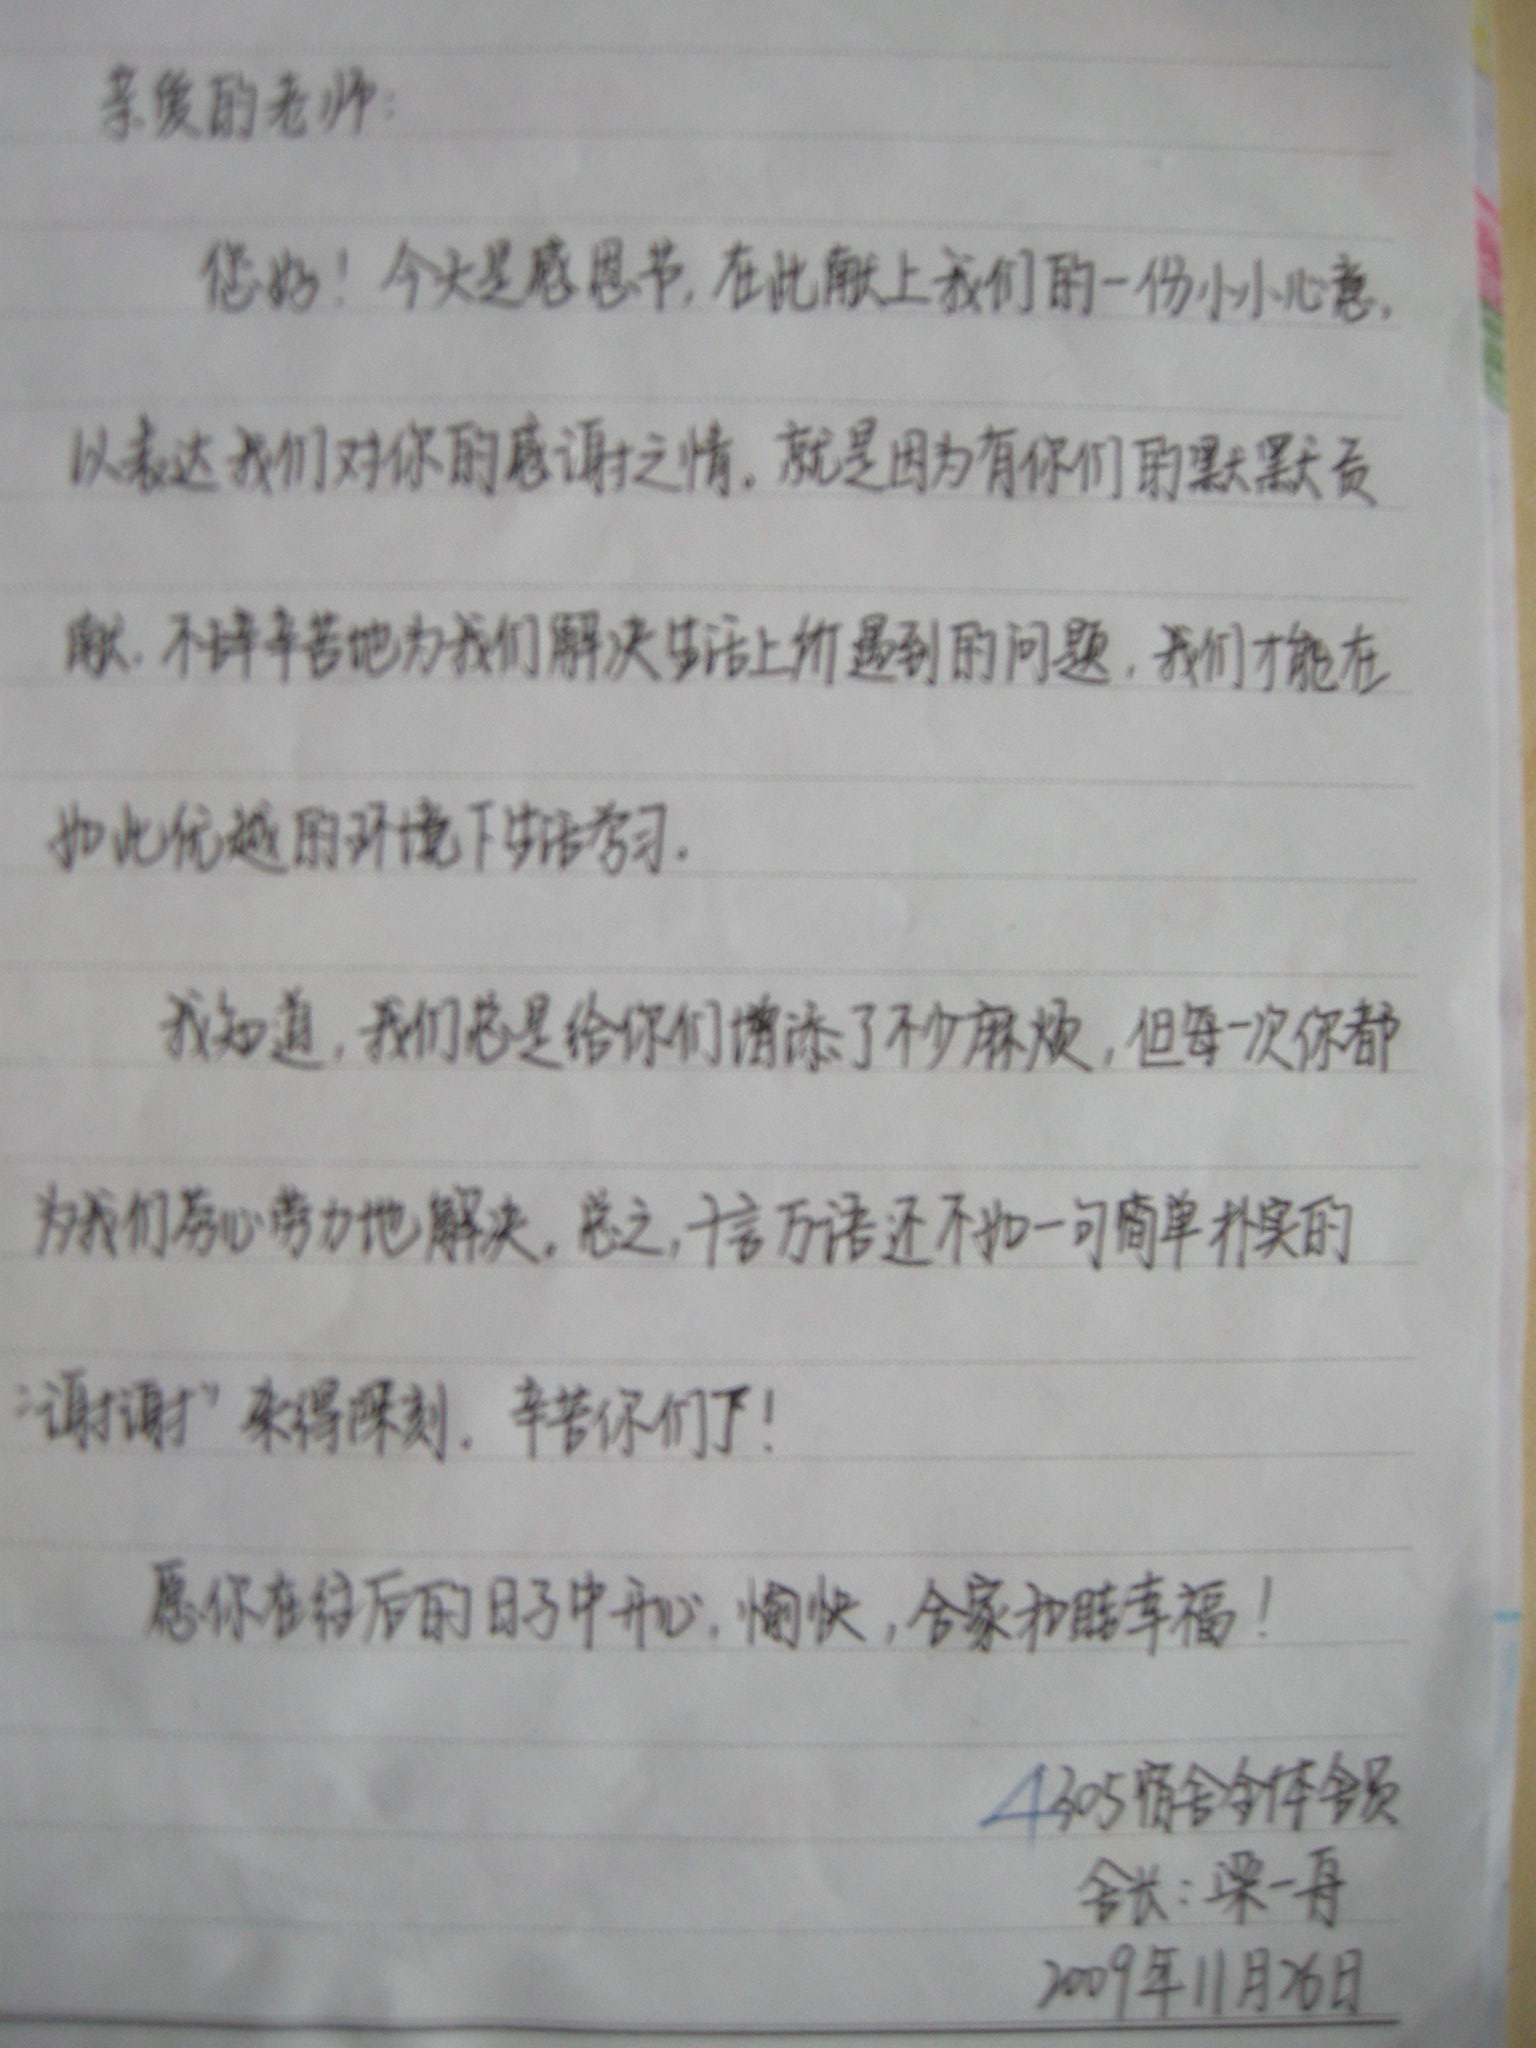 亲爱的老师：
您好！今天是感恩节，在此献上我们的一份小小心意，
以表达我们对你的感谢之情。就是因为有你们的默默贡
献，不辞辛苦地为我们解决生活上所遇到的问题，我们才能在
如此优越的环境下生活学习。
我知道，我们总是给你们增添了不少麻烦，但每一次你都
为我们劳心劳力地解决。总之，千言万语还不如一句简单朴实的
“谢谢”来得深刻。辛苦你们了！
愿你在往后的日子中开心，愉快，合家和睦幸福！
4305宿舍全体舍员
舍长：梁一舟
2009年11月26日